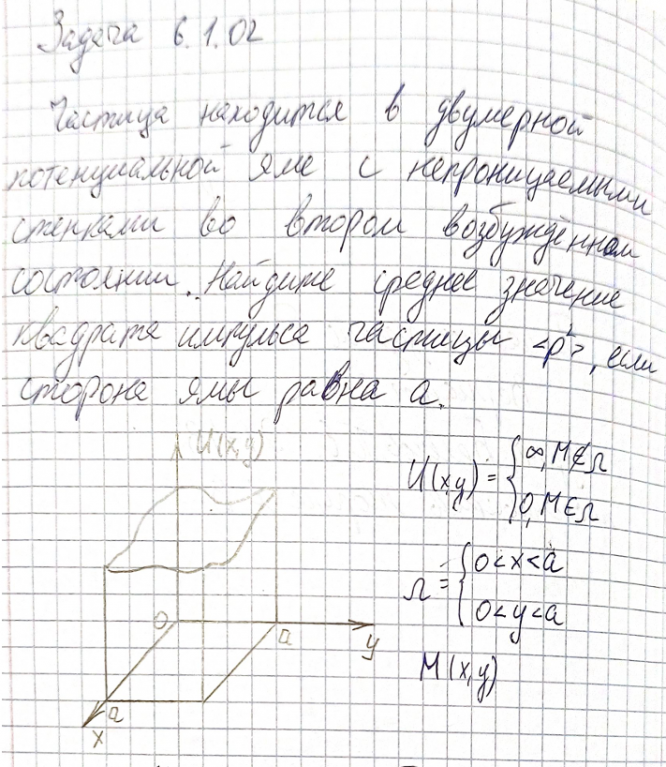 Задача 6.1.02
Частица находится в двумерной
потенциальной яме с непроницаемыми
стенками во втором возбуждённом
состоянии. Найдите среднее значение
квадрата импульса частицы <p²>, если
сторона ямы равна a.
U(x,y)
U(x,y) = { ∞, M∉Ω
0, M∈Ω
Ω = { 0<x<a
0<y<a
M(x,y)
O
a
y
a
x